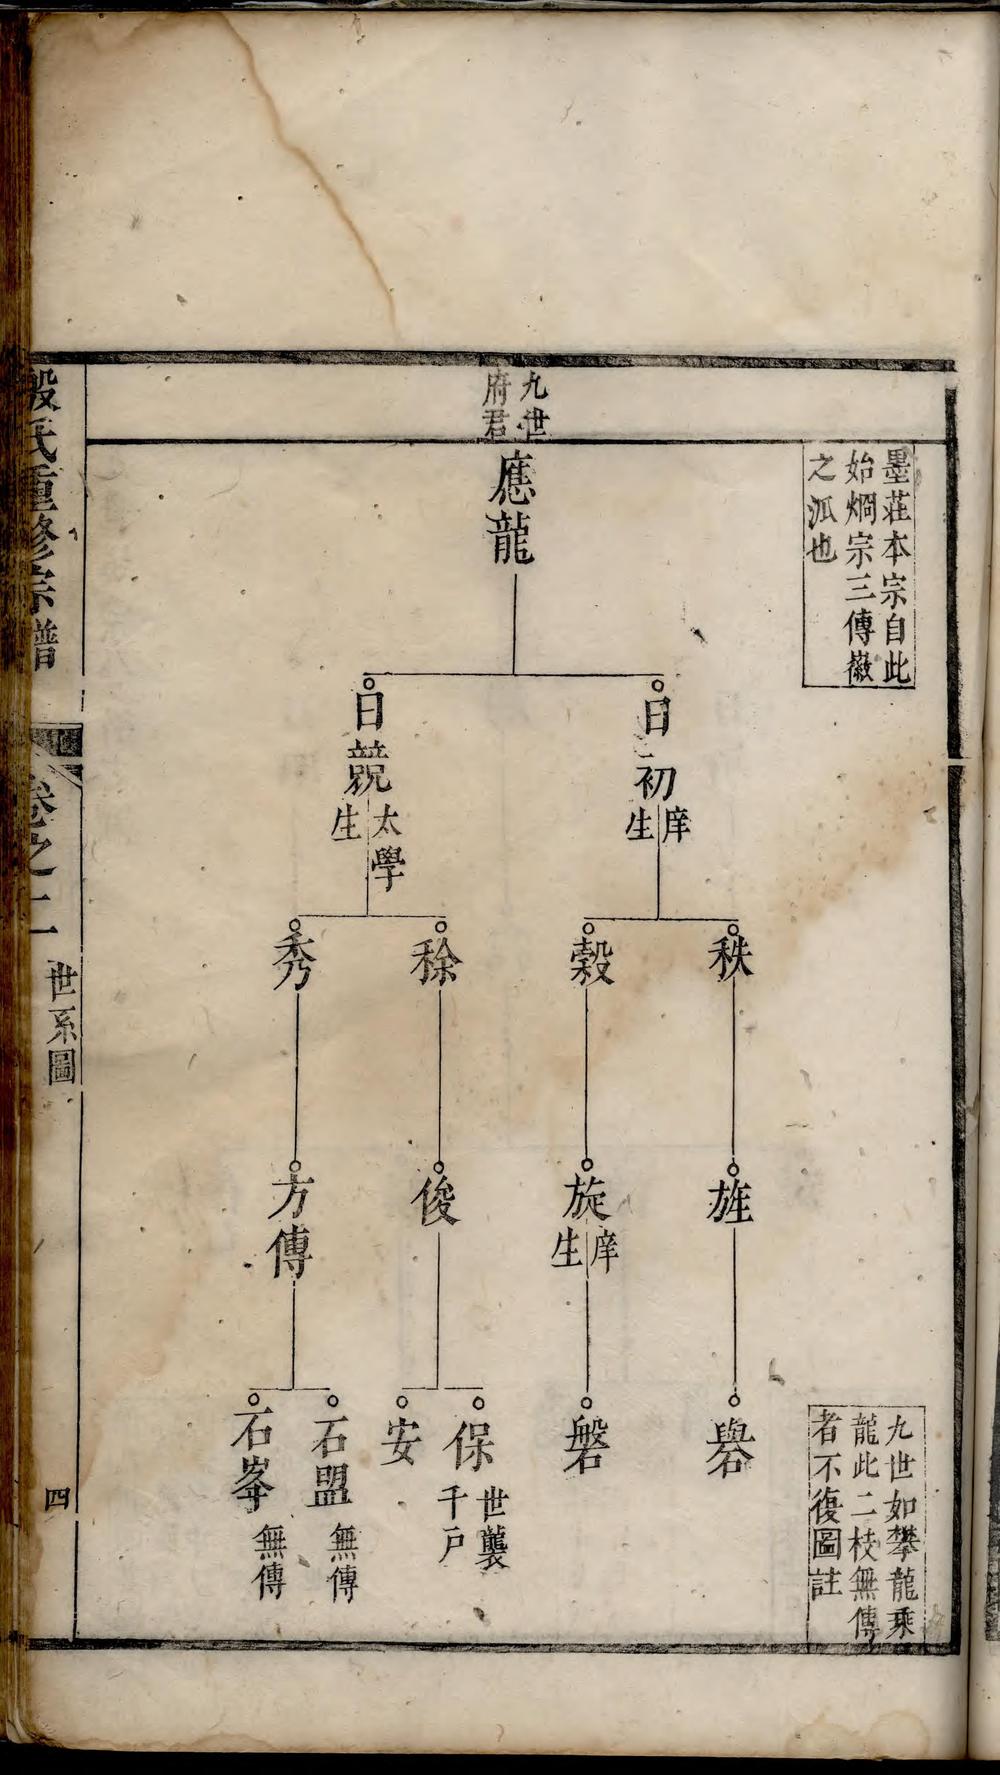 墨莊本宗自此
始烱宗三傳嶶
之派也
九世
府君
應龍
日初
庠
生
日競
太學
生
秩
穀
稌
秀
旌
旋
庠
生
俊
方傳
礜
磐
保
世襲
千户
安
石盟
無傳
石峯
無傳
九世如攀龍乘
龍此二枝無傳
者不復圖註
殷氏重修宗譜
卷之二
世系圖
四